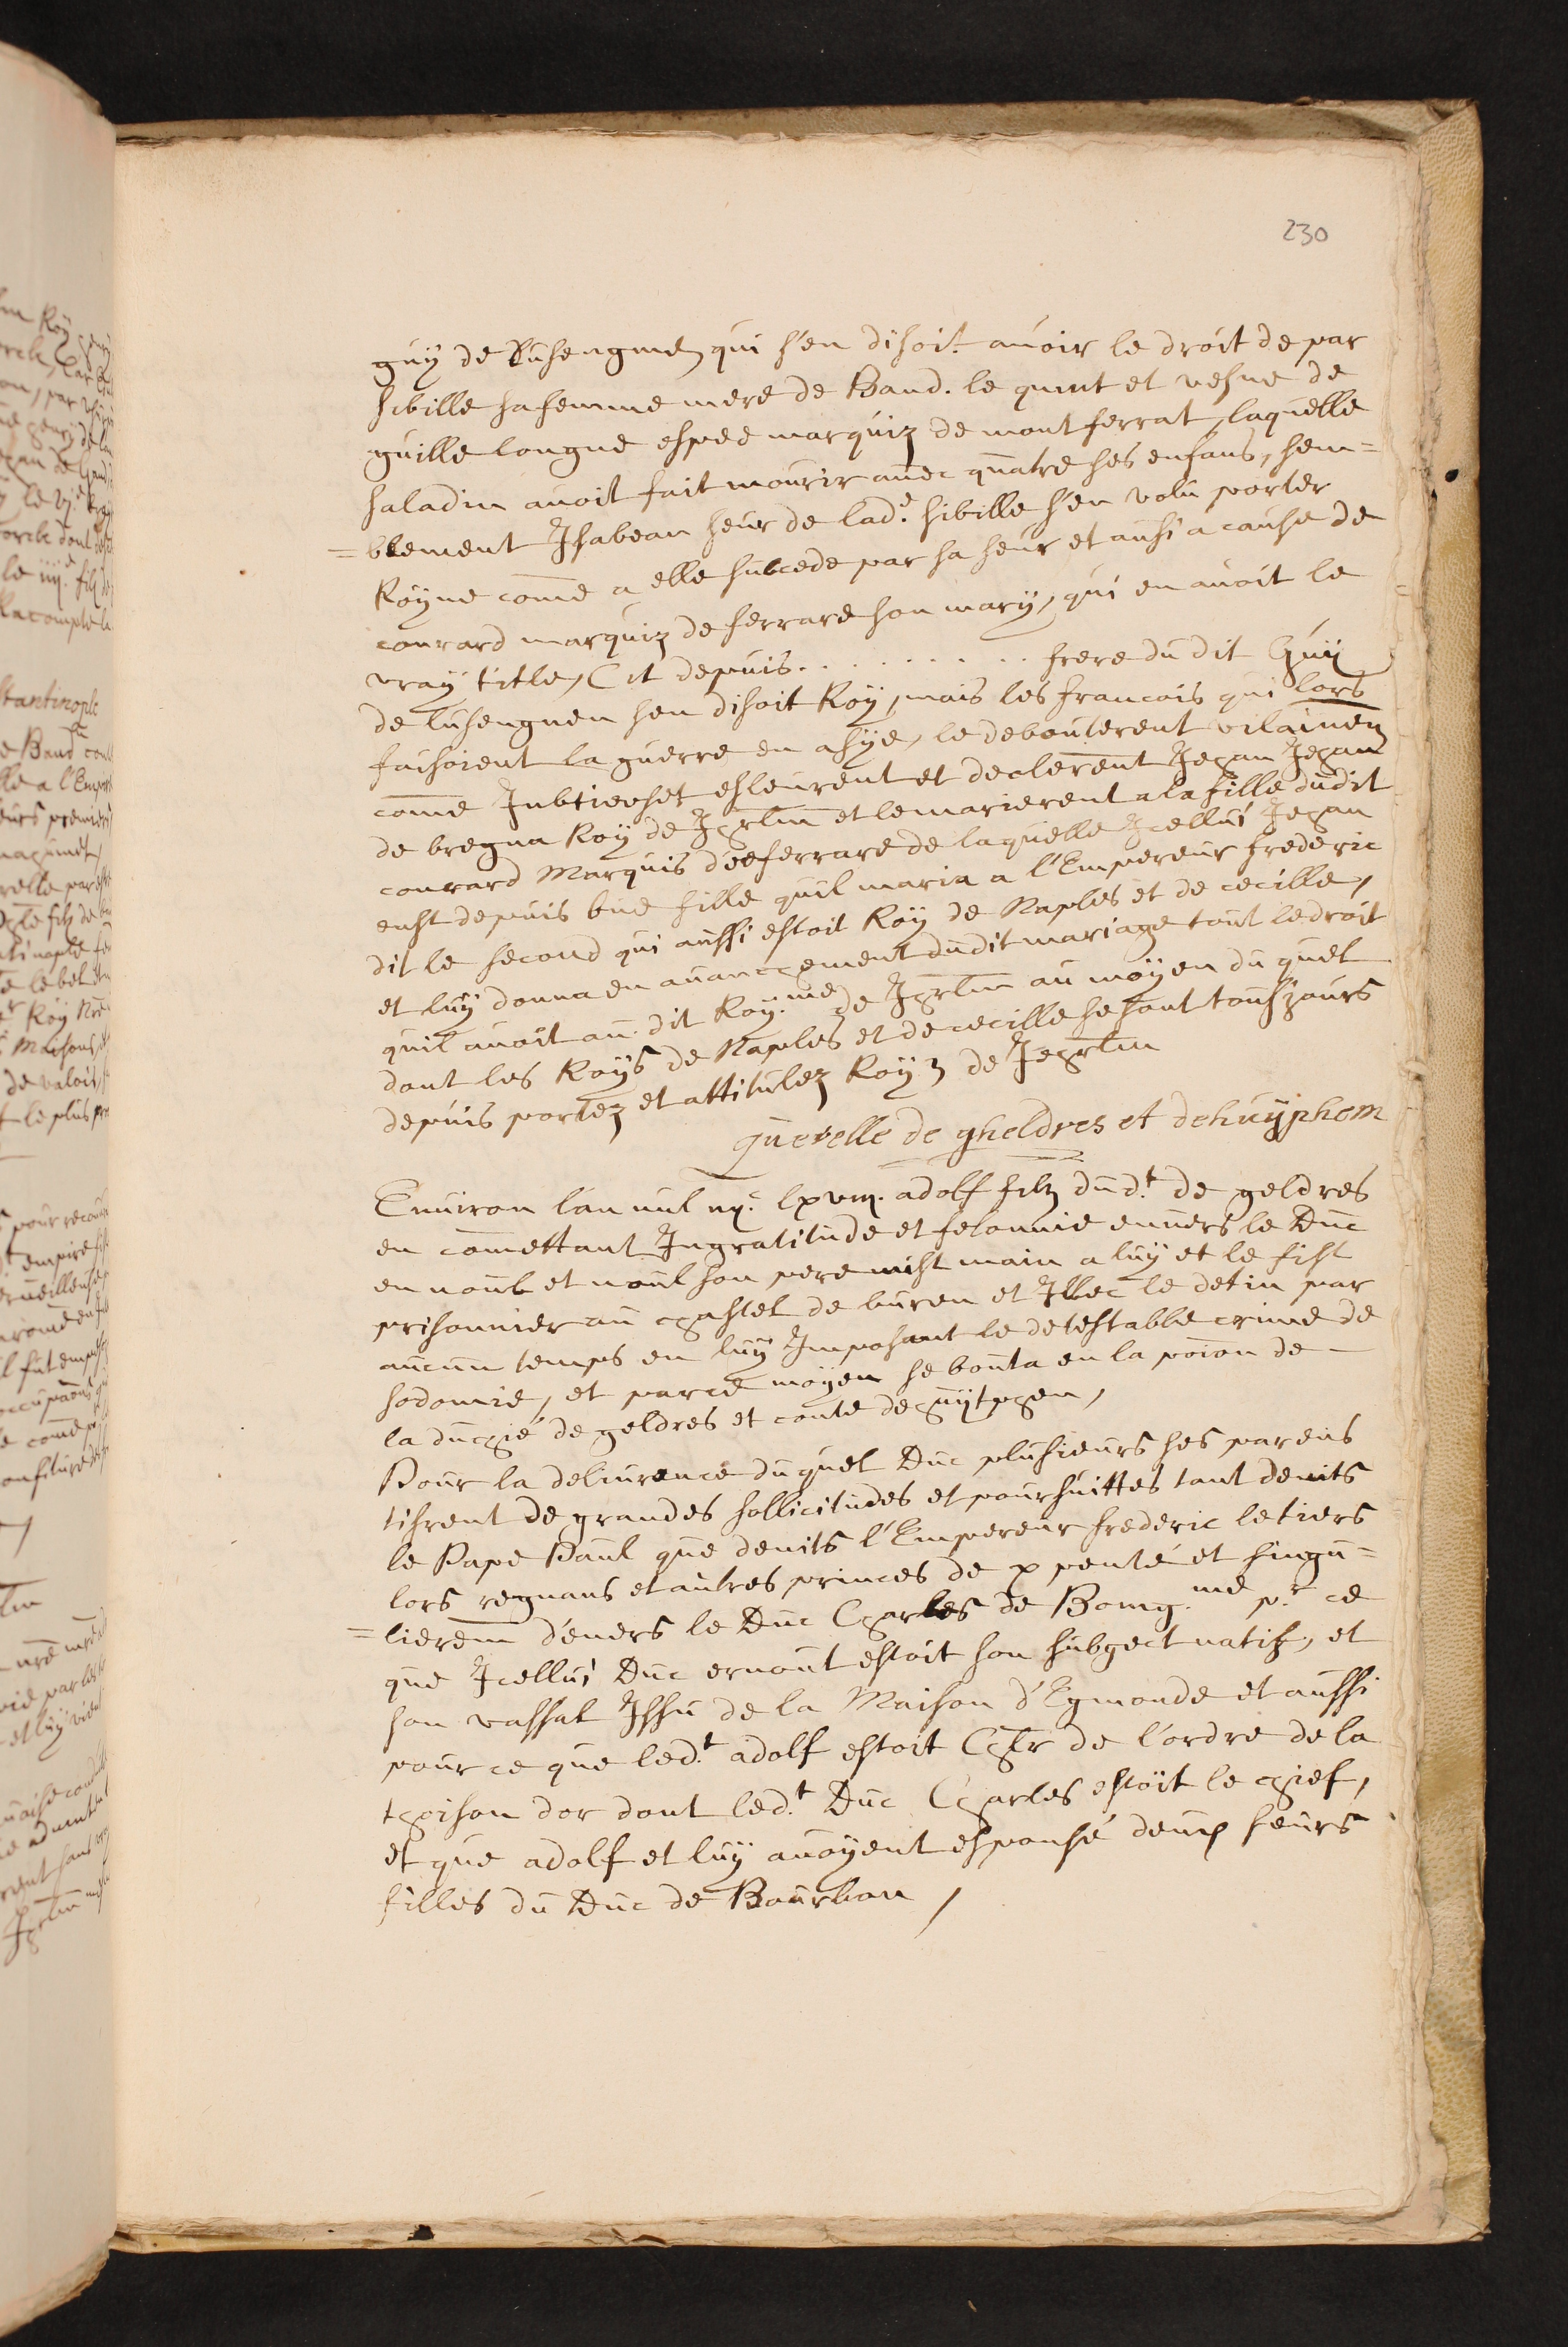 230
guÿ de Lusengnen qui s'en disoit auoir le droit de par
sibille sa femme mere de Baud. le quint et vesue de
guille longue espee marquiz de montferrat, laquelle
saladin auoit fait mourir auec quatre ses enfans, sem=
=blement Isabeau seur de lad.e sibille s'en volu porter
Roÿne comē a elle subcede par sa seur et ausi a cause de
conrard marquiz de ferrare son marÿ, qui en auoit le
vray title, Et depuis. . . . . . . . . . frere du dit Guÿ
de lusengnen sen disoit Roÿ, mais les francois qui lors
faisoient la guerre en asÿe, le debouterent vilainem̄
comē esleurent et declerent Jehan Jehan
de bregna Roÿ de Jhrlm̄ et le marierent a la fille dudit
conrard Marquis de ferrare de laquelle Jcellui Jehan
eust depuis vne fille quil maria a l'Empereur frederic
dit le second qui aussi estoit Roÿ de Naples et de cecille,
et luÿ donna en auancement dudit mariage tout le droit
quil auoit au. dit Roÿ.me de Jhrlm̄ au moÿen du quel
dont les Roÿs de Naples et de cecille se sont tousjours
depuis portez et attitulez Roÿz de Jehrlm̄
querelle de gheldres et de huÿphem
Enuiron lan mil iiijc lxviij. adolf filz dud.t de geldres
en comēttant Ingratitude et felonnie enuers le Duc
ernoul son pere mist main a luÿ et le fist
prisonnier au chastel de buren et Illec le detin par
aucun temps en luÿ Imposant le detestable crime de
sodomie, et par ce moÿen se bouta en la poiōn de
la duchié de geldres et conte de zuÿtphen,
Pour la deliurence duquel Duc plusieurs ses parens
tisrent de grandes sollicitudes et poursuittes tant deuits
le Pape Paul que deuits l'Empereur frederic le tiers
lors regnans et autres princes de ꝑpenté et singu=
=lierem̄ déuers le Duc Charles de Bourg.me p.r ce
que Jcellui Duc ernout estoit son subgect natif, et
son vassal Issu de la Maison d'Egmonde et aussi
pource que led.t adolf estoit Chlr̄ de l'ordre de la
thoison dor dont led.t Duc Charles estoit le chief,
et que adolf et luÿ auoÿent espousé deux seurs
filles du Duc de Bourbon,